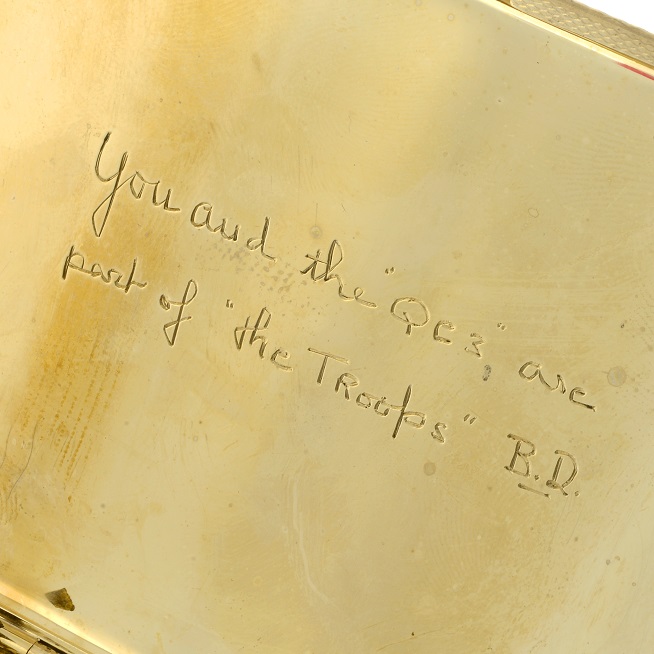 You and the "QE3" are
part of "the TRoops" B.D.